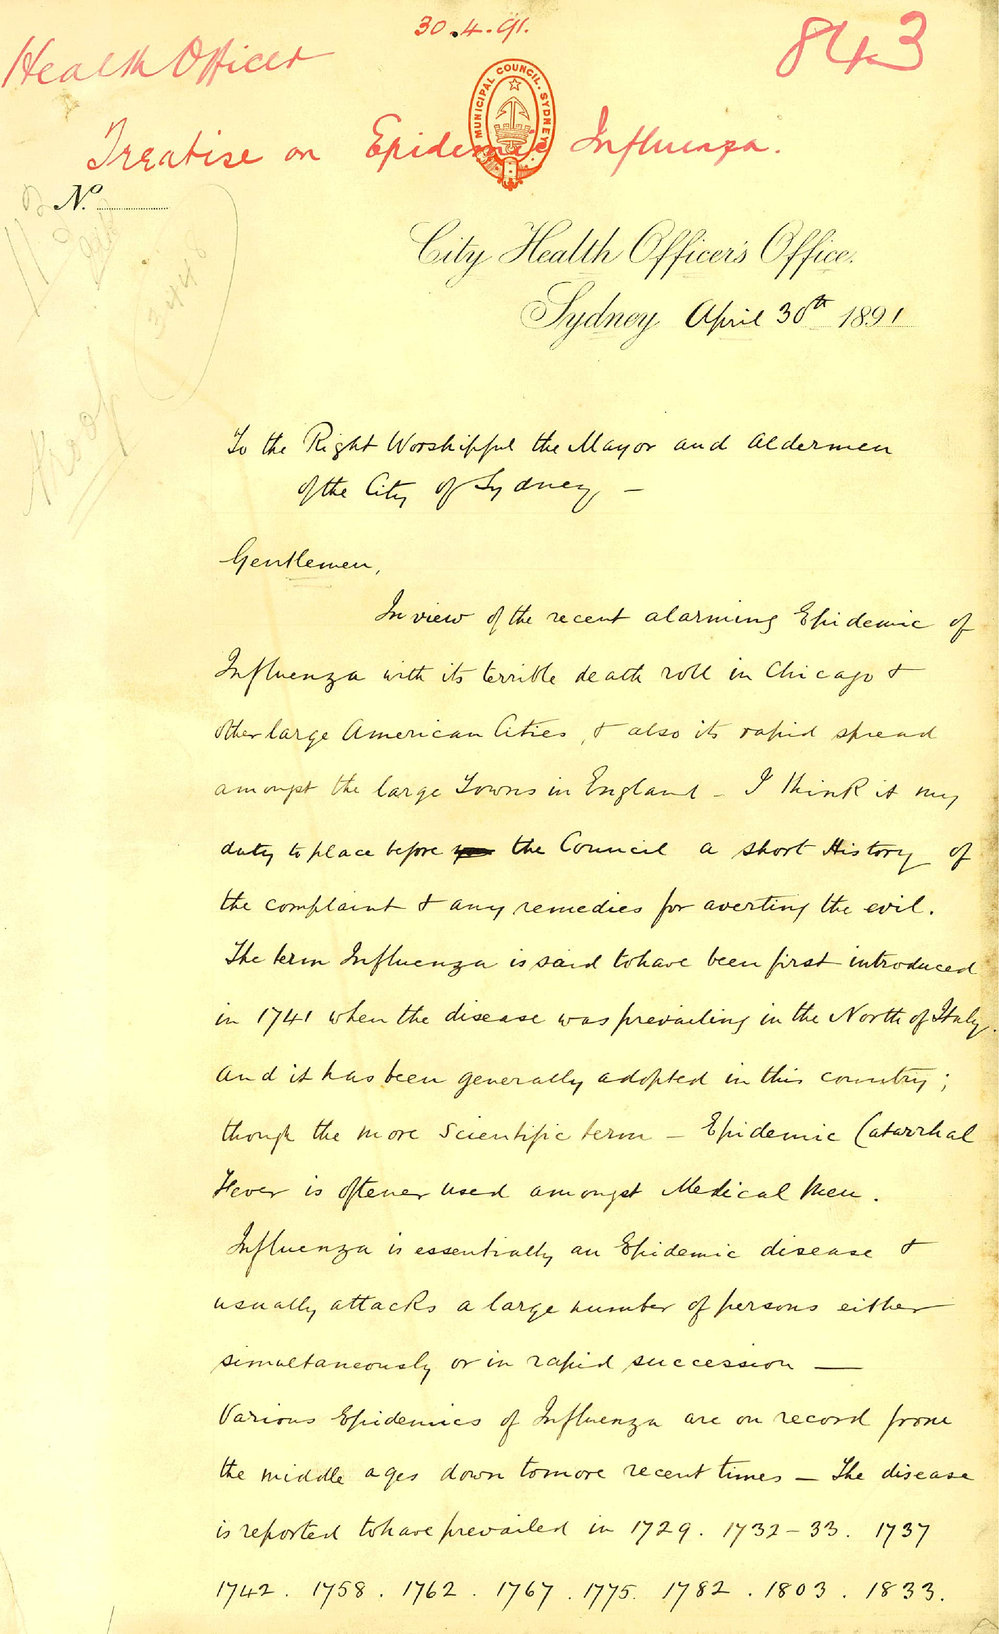 30.4.91.
843
Health Officer
MUNICIPAL COUNCIL. SYDNEY
Treatise on Epidemic Influenza.
No.
City Health Officer's Office.
Sydney April 30th 1891
Proof
To the Right Worshipful the Mayor and Aldermen
of the City of Sydney —
Gentlemen,
In view of the recent alarming Epidemic of
Influenza with its terrible death roll in Chicago &
other large American Cities, & also its rapid spread
amongst the large Towns in England – I think it my
duty to place before the Council a short History of
the complaint & any remedies for averting the evil.
The term Influenza is said to have been first introduced
in 1741 when the disease was prevailing in the North of Italy.
and it has been generally adopted in this country;
though the more Scientific term – Epidemic Catarrhal
Fever is oftener used amongst Medical Men.
Influenza is essentially an Epidemic disease &
usually attacks a large number of persons either
simultaneously or in rapid succession —
Various Epidemics of Influenza are on record from
the middle ages down to more recent times – The disease
is reported to have prevailed in 1729. 1732–33. 1737
1742. 1758. 1762. 1767. 1775. 1782. 1803. 1833.